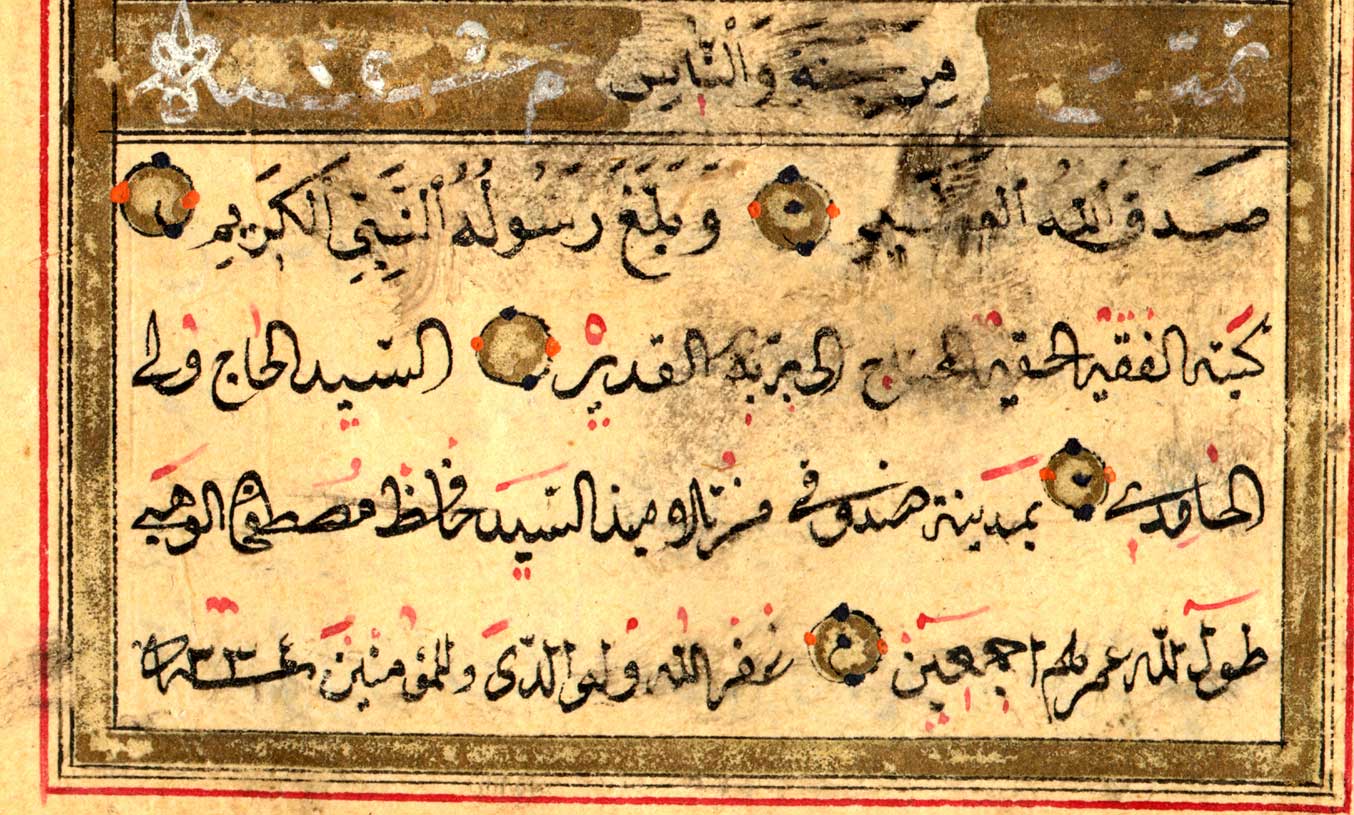 من الجنة والناس
صدق الله العظيم وبلغ رسوله النبي الكريم
كتبه الفقير الحقير المحتاج الى ربه القدير السيد الحاج ولى
الحامدى بمدينة صندوقى من السيد حافظ مصطفى الوهبى
طول الله عمرهم اجمعين غفر الله ولوالدى وللمؤمنين سنة